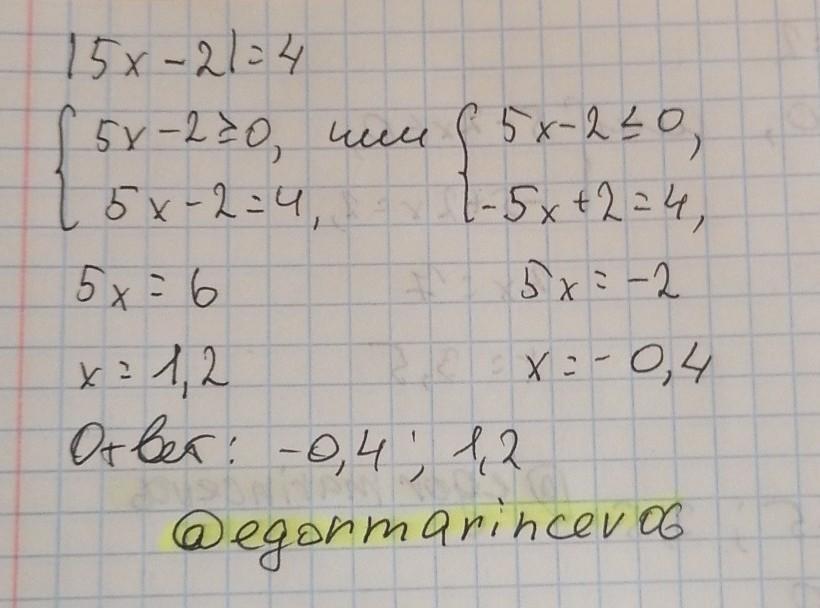 |5x-2|=4
{ 5x-2≥0, или { 5x-2≤0,
5x-2=4, -5x+2=4,
5x=6 5x=-2
x=1,2 x=-0,4
Ответ: -0,4; 1,2
@egormarincev06